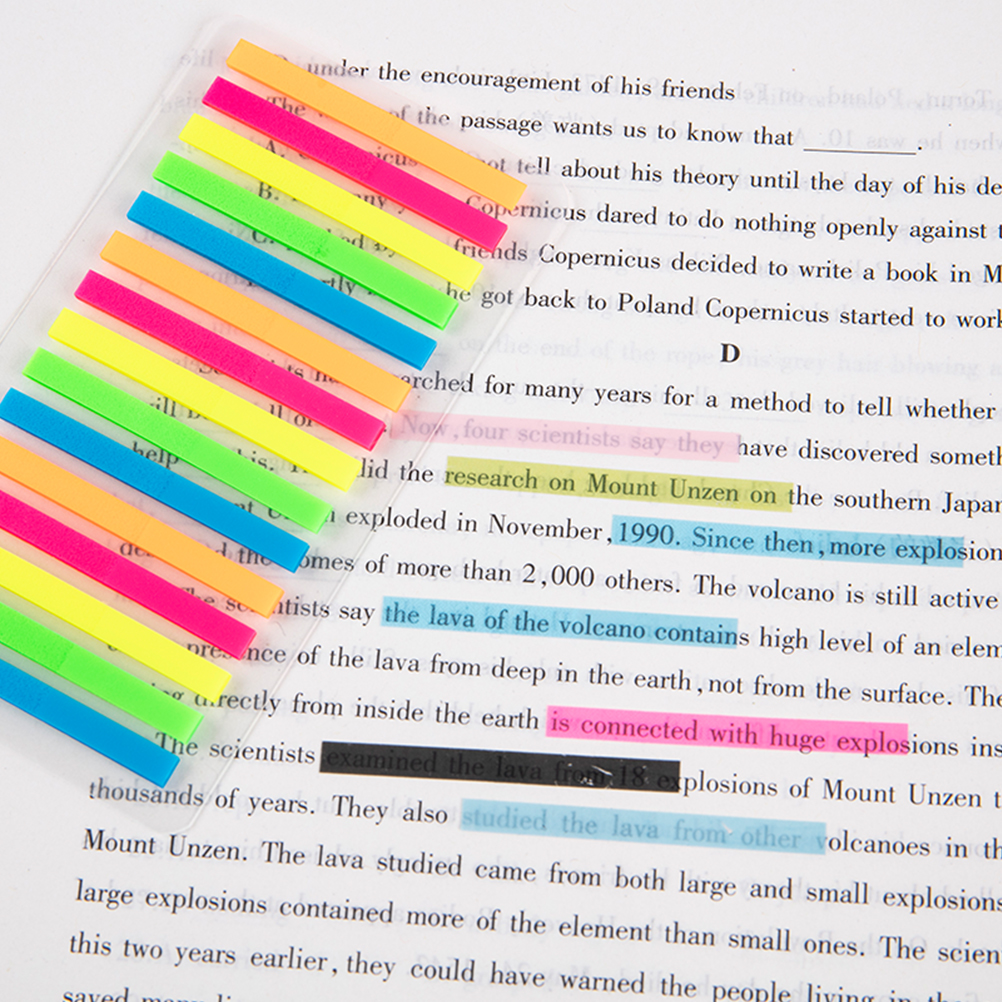 under the encouragement of his friends
The of the passage wants us to know that ________.
A. not tell about his theory until the day of his de
B. Copernicus dared to do nothing openly against t
C. friends Copernicus decided to write a book in M
he got back to Poland Copernicus started to work
D
arched for many years for a method to tell whether
Now, four scientists say they have discovered someth
help did the research on Mount Unzen on the southern Japan
exploded in November, 1990. Since then, more explosion
the omes of more than 2,000 others. The volcano is still active
ntists say the lava of the volcano contains high level of an elem
nce of the lava from deep in the earth, not from the surface. The
directly from inside the earth is connected with huge explosions ins
The scientists examined the lava from 18 explosions of Mount Unzen t
thousands of years. They also studied the lava from other volcanoes in th
Mount Unzen. The lava studied came from both large and small explosions
large explosions contained more of the element than small ones. The scien
this two years earlier, they could have warned the people living in the
saved many